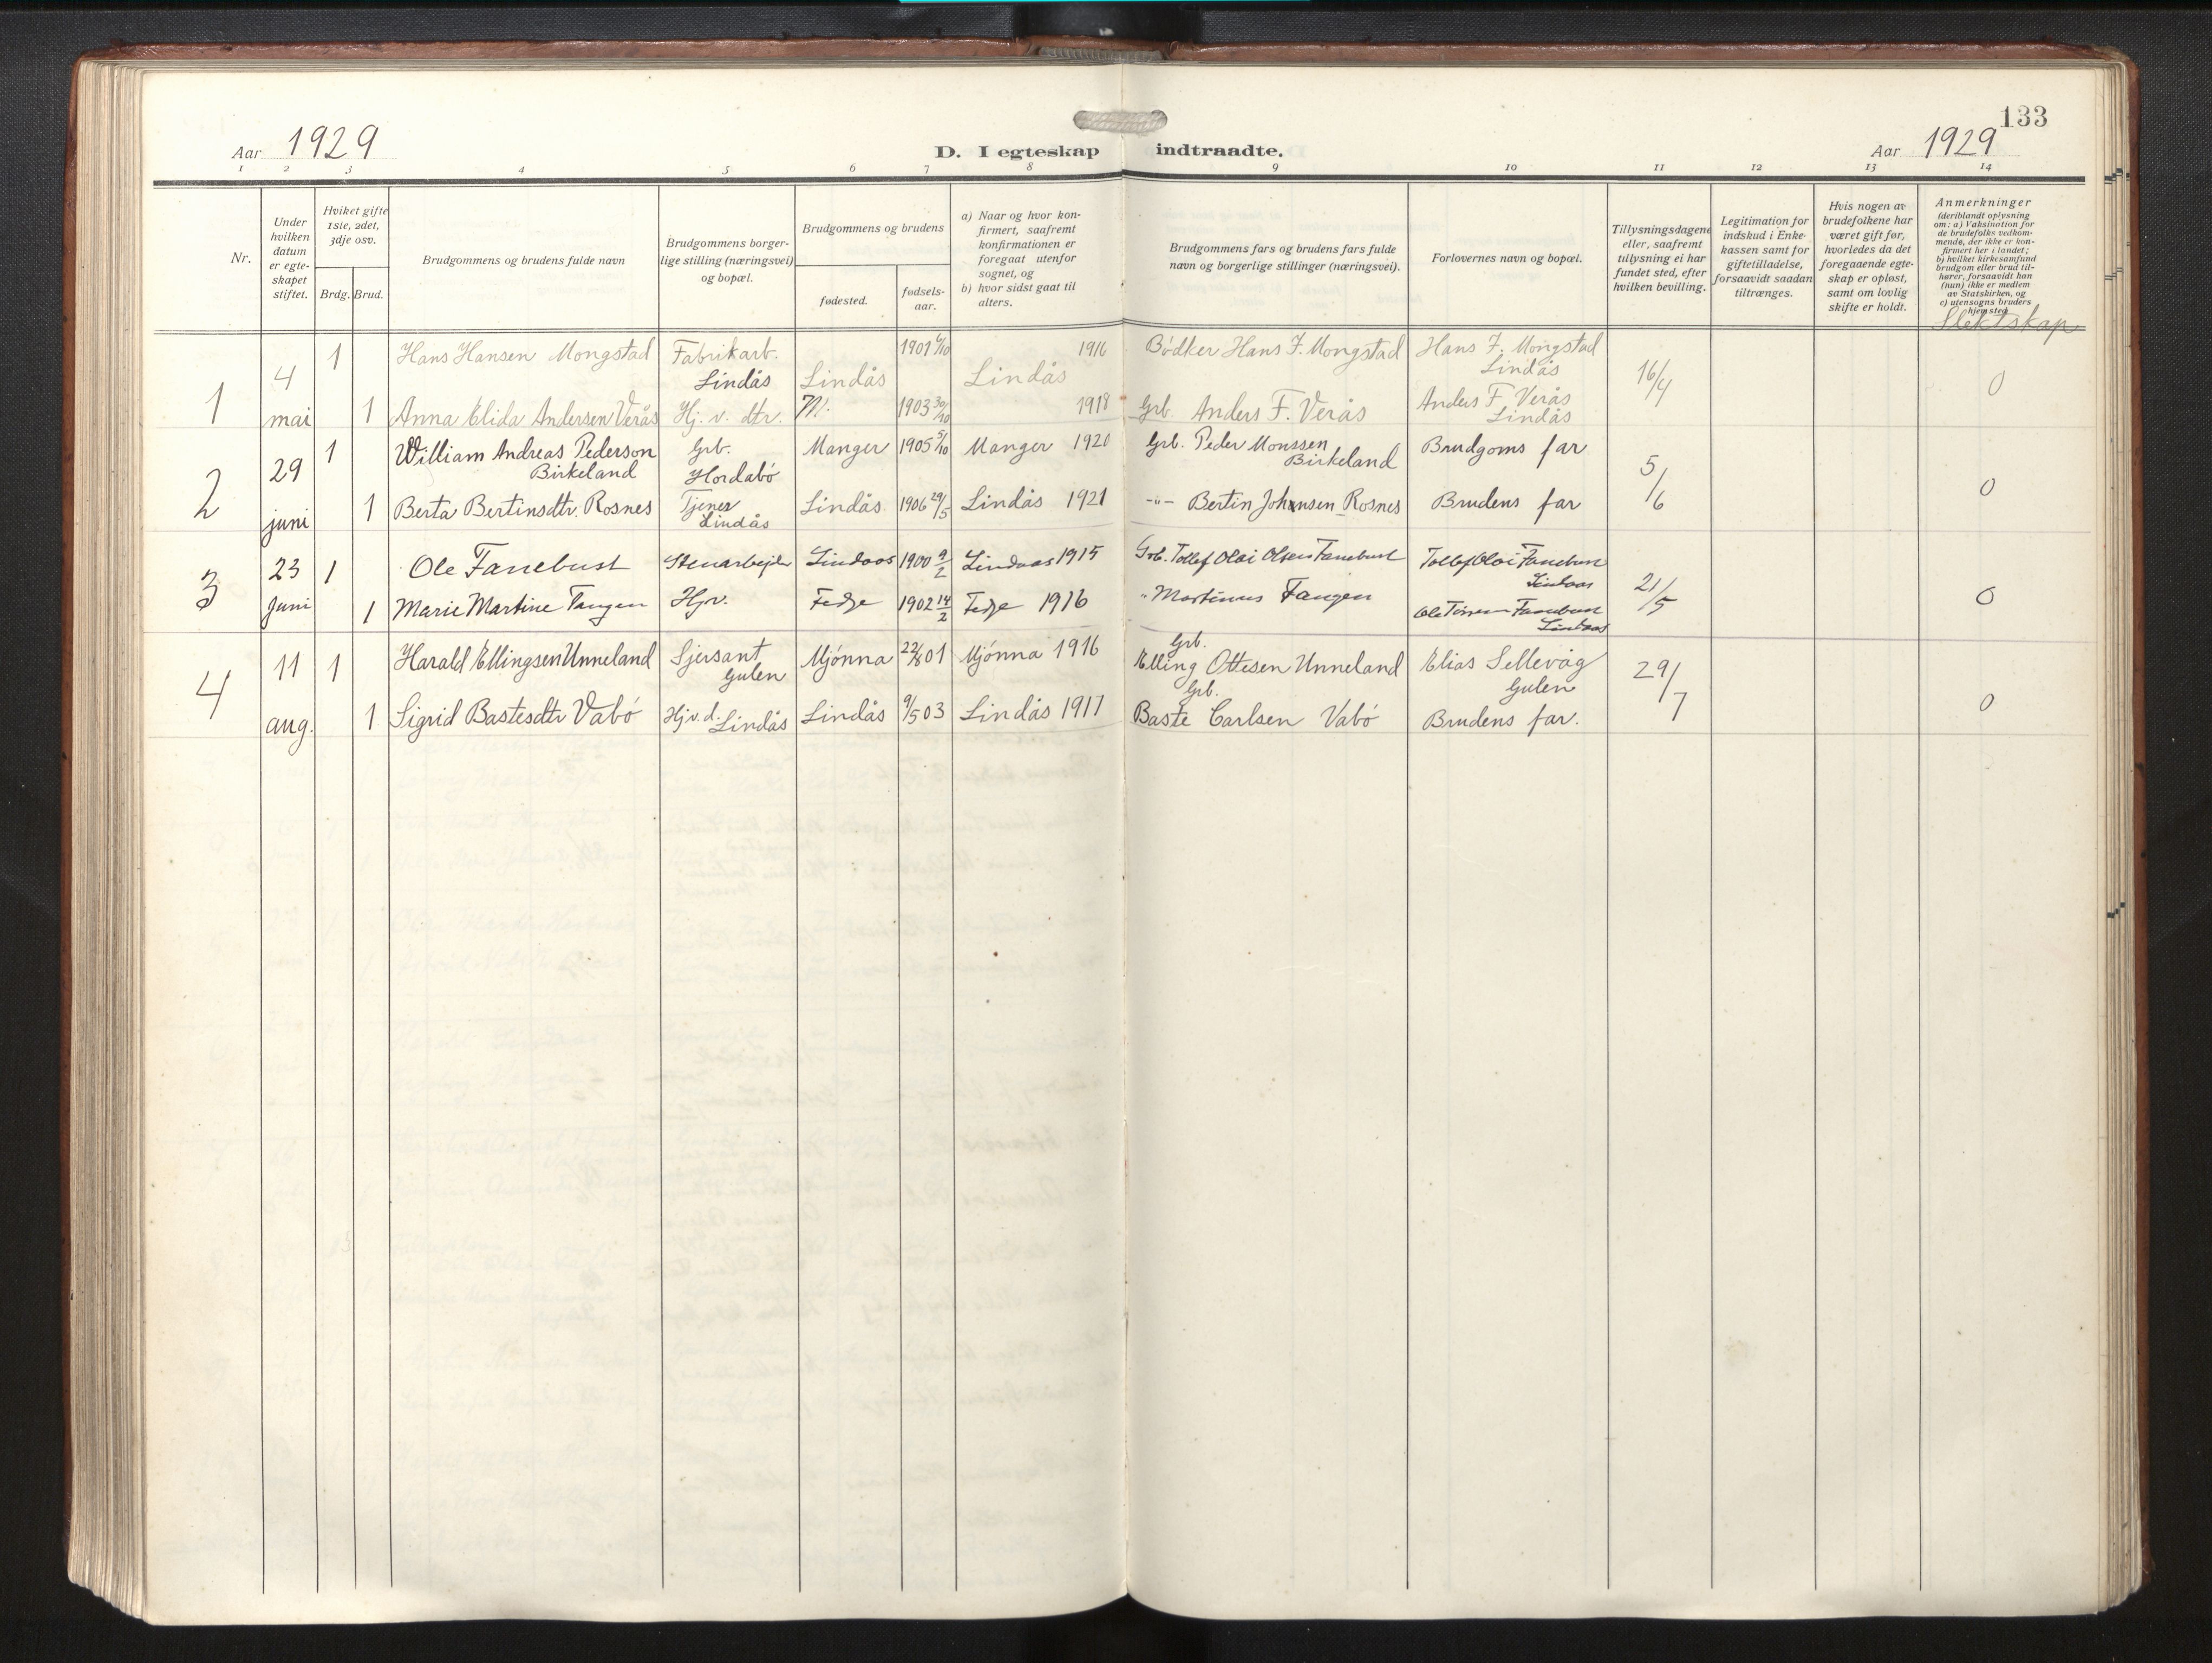 133
Aar 1929
D. I egteskap indtraadte.
Aar 1929
1 2 3 4 5 6 7 8 9 10 11 12 13 14
Nr.
Under
hvilken
datum
er egte-
skapet
stiftet.
Hviket gifte
1ste, 2det,
3dje osv.
Brdg. Brud.
Brudgommens og brudens fulde navn
Brudgommens borger-
lige stilling (næringsvei)
og bopæl.
Brudgommens og brudens
fødested.
fødsels-
aar.
a) Naar og hvor kon-
firmert, saafremt
konfirmationen er
foregaat utenfor
sognet, og
b) hvor sidst gaat til
alters.
Brudgommens fars og brudens fars fulde
navn og borgerlige stillinger (næringsvei).
Forlovernes navn og bopæl.
Tillysningsdagene
eller, saafremt
tillysning ei har
fundet sted, efter
hvilken bevilling.
Legitimation for
indskud i Enke-
kassen samt for
giftetilladelse,
forsaavidt saadan
tiltrænges.
Hvis nogen av
brudefolkene har
været gift før,
hvorledes da det
foregaaende egte-
skap er opløst,
samt om lovlig
skifte er holdt.
Anmerkninger
(deriblandt oplysning
om: a) Vaksination for
de brudefolks vedkom-
mende, der ikke er kon-
firmert her i landet;
b) hvilket kirkesamfund
brudgom eller brud til-
hører, forsaavidt han
(hun) ikke er medlem
av Statskirken, og
c) utensogns bruders
hjemsted
Slektskap
1
4
mai
1 Hans Hansen Mongstad Fabrikarb. Lindås Lindås 1901 6/10 Lindås 1916 Bödker Hans F. Mongstad Hans F. Mongstad
Lindås
16/4 0
1 Anna Elida Andersen Verås Hj. v. dtr. 1903 30/10 1918 Grb. Anders F. Verås Anders F Verås
Lindås
2
29
juni
1 William Andreas Pederson
Birkeland
Grb.
Hordabö
Manger 1905 5/10 Manger 1920 Grb. Peder Monssen
Birkeland
Brudgoms far
5/6 0
1 Berta Bertinsdtr. Rosnes Tjener
Lindås
Lindås 1906 29/5 Lindås 1921 -"- Bertin Johansen Rosnes Brudens far
3
23
Juni
1 Ole Fanebust Stenarbejder Lindaas 1900 9/2 Lindaas 1915 Grb. Tollef Olai Olsen Fanebust Tollef Olai Fanebust
Lindaas
21/5 0
1 Marie Martine Tangen Hjv. Fedje 1902 14/2 Fedje 1916 " Martinus Tangen Fanebust
Lindaas
4
11
aug.
1 Harald Ellingsen Unneland Sjersant
Gulen
Mjönna 22/8 01 Mjönna 1916 Grb.
Elling Ottesen Unneland Elias Sellevåg
Gulen
29/7 0
1 Sigrid Bastesdtr Vabö Hj.v.d. Lindås Lindås 9/5 03 Lindås 1917 Grb.
Baste Carlsen Vabö Brudens far.